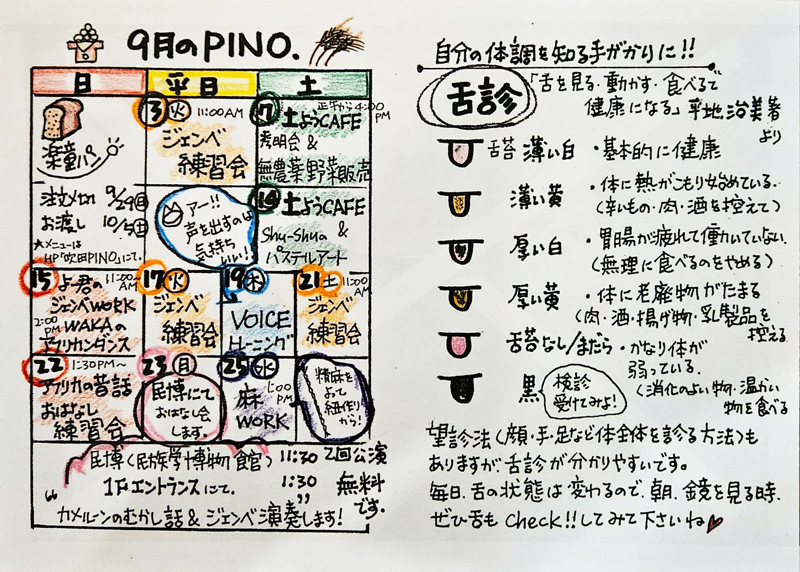 9月のPINO.
日 平日 土
楽童パン
3 火 11:00AM
ジェンベ
練習会
7 正午から4:00PM
土ようCAFE
秀明会 &
無農薬野菜販売
注文〆切 9/29日
お渡し 10/5土
*メニューは
HP「吹田PINO」にて。
アー!!
声を出すのは
気持ち
いい!
14 土ようCAFE
Shu-Shua &
パステルアート
15 よー君の 11:00AM
ジェンベWORK
2:00PM WAKAの
アフリカンダンス
17 火
ジェンベ
練習会
19 木
VOICE
トレーニング
21 土 11:00AM
ジェンベ
練習会
22 1:30PM~
アフリカの昔話
おはなし
練習会
23 月
民博にて
おはなし会
します。
25 水
1:00PM
麻
WORK
精麻を
よって
紐作り
から!
民博(民族学博物館) 11:30 2回公演
1Fエントランスにて。 1:30 無料です。
"カメルーンのむかし話&ジェンベ演奏します!"
自分の体調を知る手がかりに!!
舌診
「舌を見る・動かす・食べるで
健康になる」平地治美著
より
舌苔 薄い白 ・基本的に健康
薄い黄 ・体に熱がこもり始めている。
(辛いもの・肉・酒を控えて)
厚い白 ・胃腸が疲れて働いていない。
(無理に食べるのをやめる)
厚い黄 ・体に老廃物がたまる
(肉・酒・揚げ物・乳製品を
控える
舌苔なし/まだら ・かなり体が
弱っている。
(消化のよい物・温かい
物を食べる
黒 検診
受けてみよ!
望診法(顔・手・足など体全体を診る方法)も
ありますが、舌診が分かりやすいです。
毎日、舌の状態は変わるので、朝、鏡を見る時、
ぜひ舌もcheck!!してみて下さいね♥